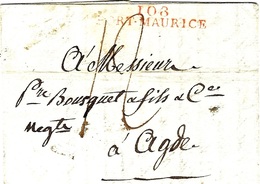 108
PORT-MAURICE
A Messieurs
Pre Bousquet & fils & Ces
Negts
à Agde